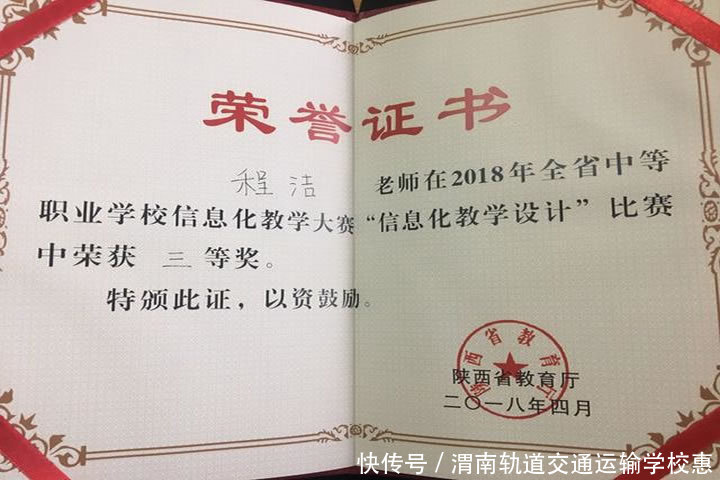 荣誉证书
程洁 老师在2018年全省中等
职业学校信息化教学大赛“信息化教学设计”比赛
中荣获 三 等奖。
特颁此证，以资鼓励。
陕西省教育厅
陕西省教育厅
二〇一八年四月
快传号/渭南轨道交通运输学校惠